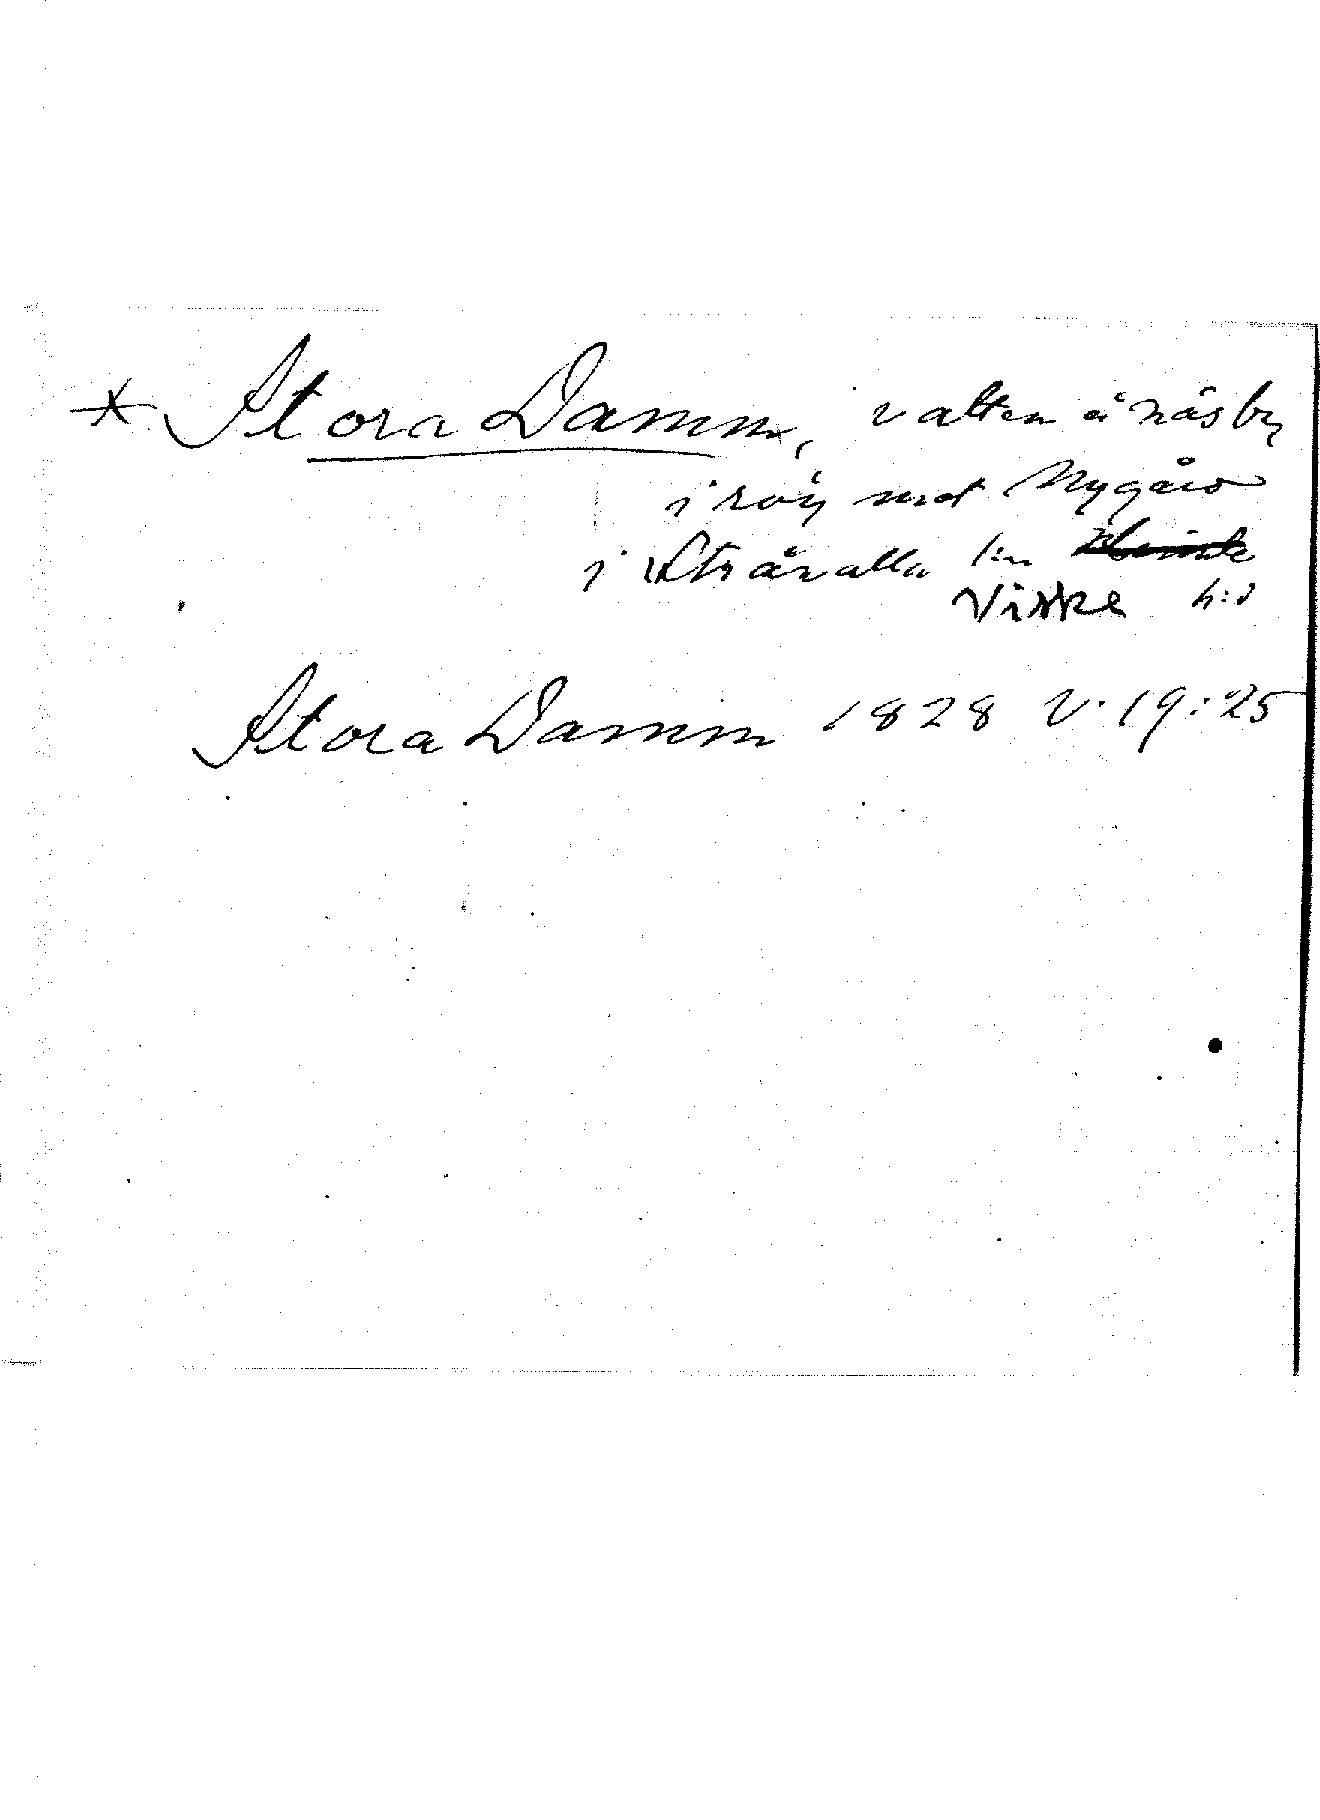 * Stora Damm, vatten å näs by
i rå mot Nygård
i Stråvalla sn
Viske h:d
Stora Damm 1828 V. 19:25